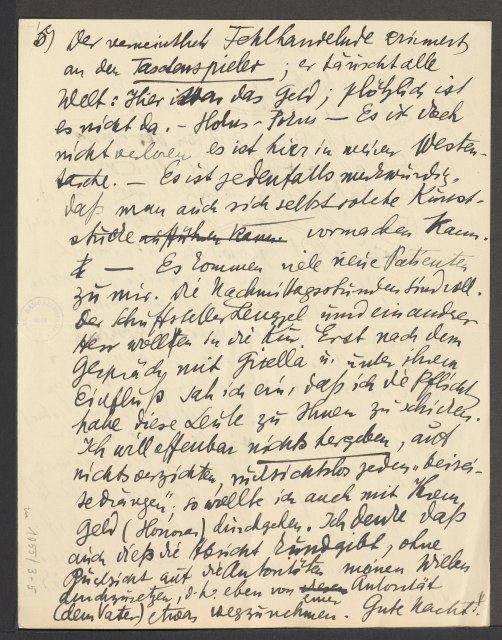 5) Der vermeintlich Fehlhandelnde erinnert
an den Taschenspieler; er täuscht alle
Welt: Hier ist das Geld; plötzlich ist
es nicht da. – Hokus-Pokus – Es ist doch
nicht verloren es ist hier in meiner Westen-
tasche. – Es ist jedenfalls merkwürdig,
daß man auch sich selbst solche Kunst-
stücke aufführen kann vormachen kann.
– Es kommen viele neue Patienten
zu mir. Die Nachmittagsstunden sind voll.
Der Schriftsteller Lengyel und ein anderer
Herr wollten in die Kur. Erst nach dem
Gespräch mit Gisella u. unter ihrem
Einfluß sah ich ein, daß ich die Pflicht
habe diese Leute zu Ihnen zu schicken.
Ich will offenbar nichts hergeben, auf
nichts verzichten, rücksichtslos jeden „beisei-
tedrängen“; so wollte ich auch mit Ihrem
Geld (Honorar) durchgehen. Ich denke daß
auch dieß die Absicht kundgibt, ohne
Rücksicht auf die Autoritäten meinen Willen
durchzusetzen, d.h. eben von einer Autorität
(dem Vater) etwas wegzunehmen. Gute Nacht!